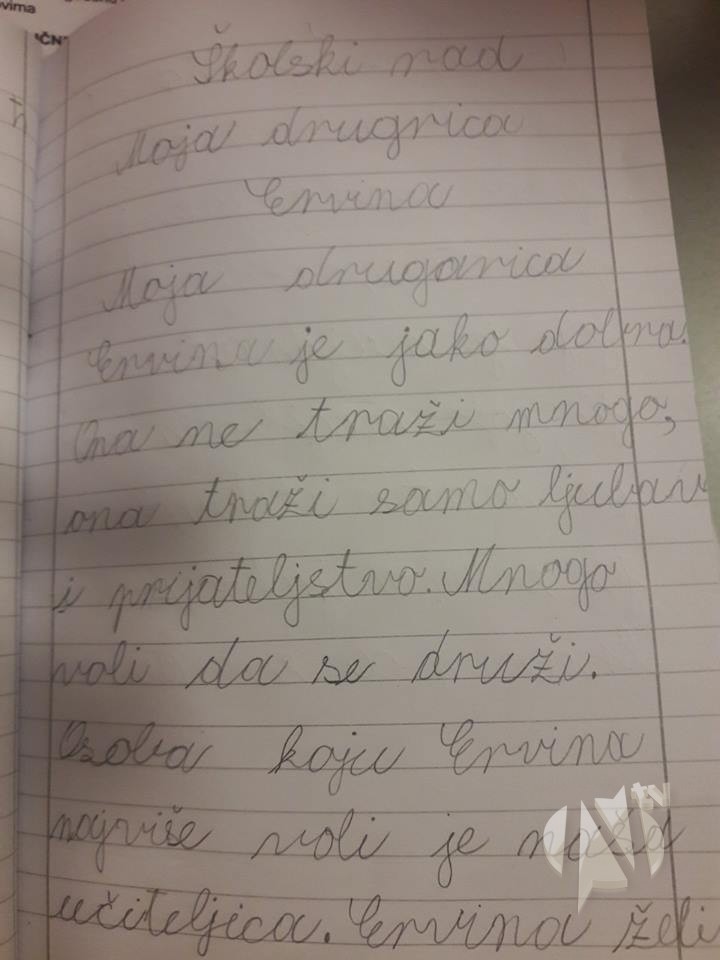 vima
IČN
Školski rad
Moja drugrica
Ervina
Moja drugarica
Ervina je jako dobra.
Ona ne traži mnogo,
ona traži samo ljubav
i prijateljstvo. Mnogo
voli da se druži.
Osoba koju Ervina
najviše voli je naša
učiteljica. Ervina želi
tv